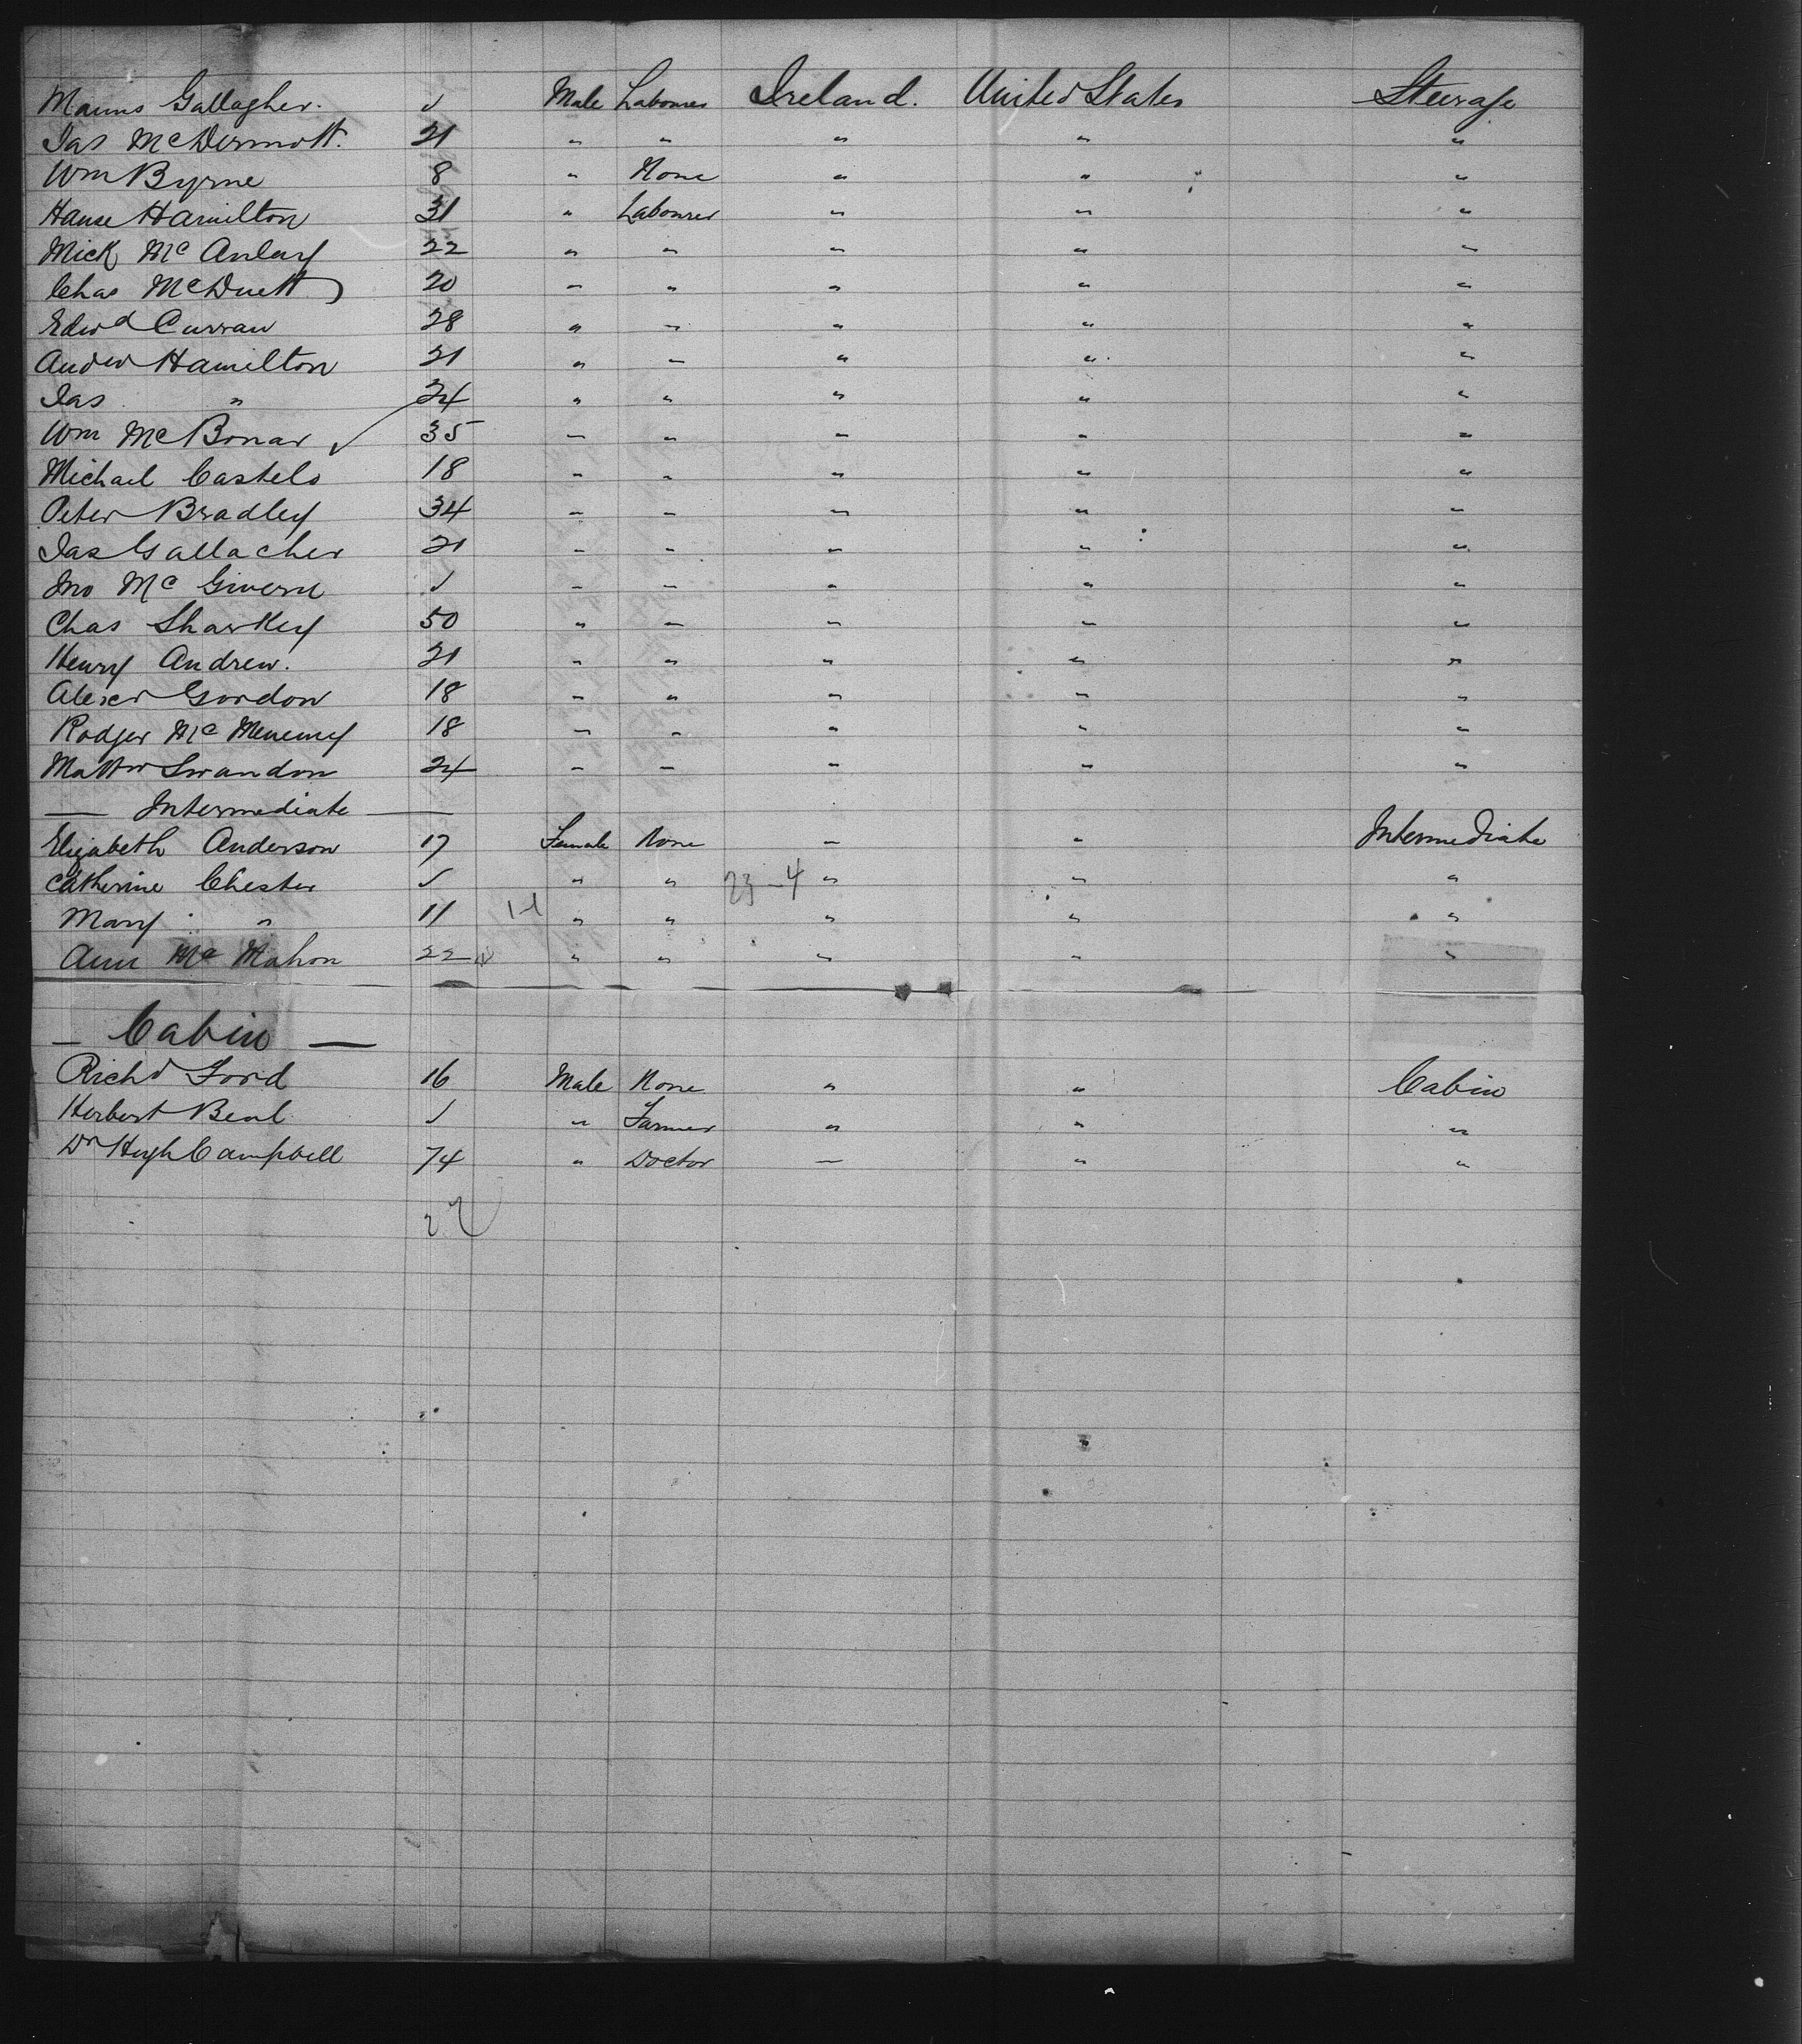 Manus Gallagher. √ Male Labourer Ireland. United States Steerage
Jas McDermott. 21 " " " " "
Wm Byrne 8 " None " " "
Hanse Hamilton 31 " Labourer " " "
Mick Mc Anlary 22 " " " " "
Chas McDuett 20 " " " " "
Edwd Curran 28 " " " " "
Andw Hamilton 21 " " " " "
Jas " 24 " " " " "
Wm McBonar √ 35 " " " " "
Michael Castelo 18 " " " " "
Peter Bradley 34 " " " " "
Jas Gallacher 21 " " " " "
Jno Mc Givern √ " " " " "
Chas Sharkey 50 " " " " "
Henry Andrew. 21 " " " " "
Alexr Gordon 18 " " " " "
Rodger Mc Menemy 18 " " " " "
Mattw Swandon 24 " " " " "
— Intermediate —
Elizabeth Anderson 17 Female None " " Intermediate
Catherine Chester √ " " 23-4 " " "
Mary " 11 1-1 " " " " "
Ann Mc Mahon 22 " " " " "
— Cabin —
Richd Ford 16 Male None " " Cabin
Herbert Beal √ " Farmer " " "
Dr Hugh Campbell 74 " Doctor — " "
27